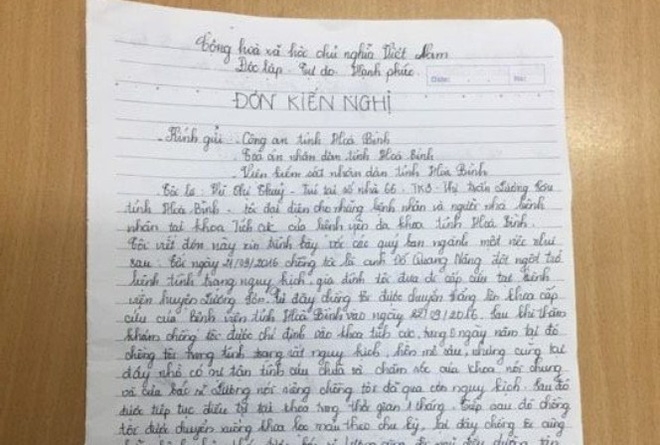 Cộng hoà xã hội chủ nghĩa Việt Nam
Độc lập - Tự do - Hạnh phúc
ĐƠN KIẾN NGHỊ
- Kính gửi - Công an tỉnh Hoà Bình
- Toà án nhân dân tỉnh Hoà Bình
- Viện kiểm sát nhân dân tỉnh Hoà Bình
Tôi là: Thuỷ - Trú tại số nhà 66 - TK3 - Thị trấn Lương Sơn
tỉnh Hoà Bình - tôi đại diện cho những bệnh nhân và người nhà bệnh
nhân tại khoa của bệnh viện đa khoa tỉnh Hoà Bình.
Tôi viết đơn này xin trình bày với các quý ban ngành một việc như
sau: Tối ngày 21/09/2016 chồng tôi là anh Đỗ Quang Năng đột ngột trở
bệnh tình trạng nguy kịch, gia đình tôi đưa đi cấp cứu tại bệnh
viện huyện Lương Sơn. Từ đây chồng tôi được chuyển thẳng lên khoa cấp
cứu của bệnh viện tỉnh Hoà Bình vào ngày /09/2016. Sau khi thăm
khám chồng tôi được chỉ định vào khoa tích cực, trong ngày nằm tại đó
chồng tôi trong tình trạng rất nguy kịch, hôn mê sâu, nhưng cũng tại
đây nhờ có sự tận tình cứu chữa và chăm sóc của khoa nói chung
và của bác sĩ Lương nói riêng chồng tôi đã qua cơn nguy kịch. Sau đó
được tiếp tục điều trị tại khoa trong thời gian 1 tháng. Tiếp sau đó chồng
tôi được chuyển xuống khoa lọc máu theo chu kỳ, tại đây chồng tôi cũng